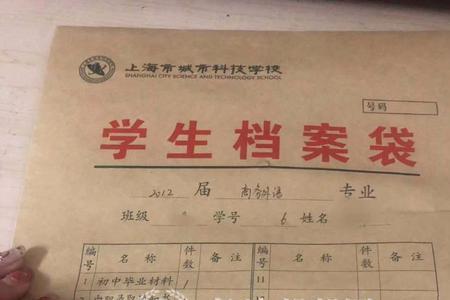 上海市城市科技学校
SHANGHAI CITY SCIENCE AND TECHNOLOGY SCHOOL
号码
学生档案袋
2012 届 商务外语 专业
班级 学号 6 姓名
编号 名称 件数 备注 编号 名称 件数 备注
1 初中毕业材料 1 11